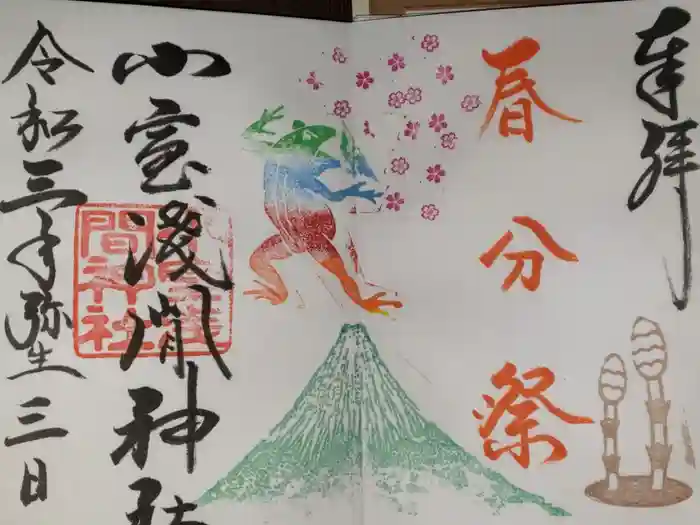 奉拝
春分祭
小室浅間神社
間神社
令和三年弥生三日